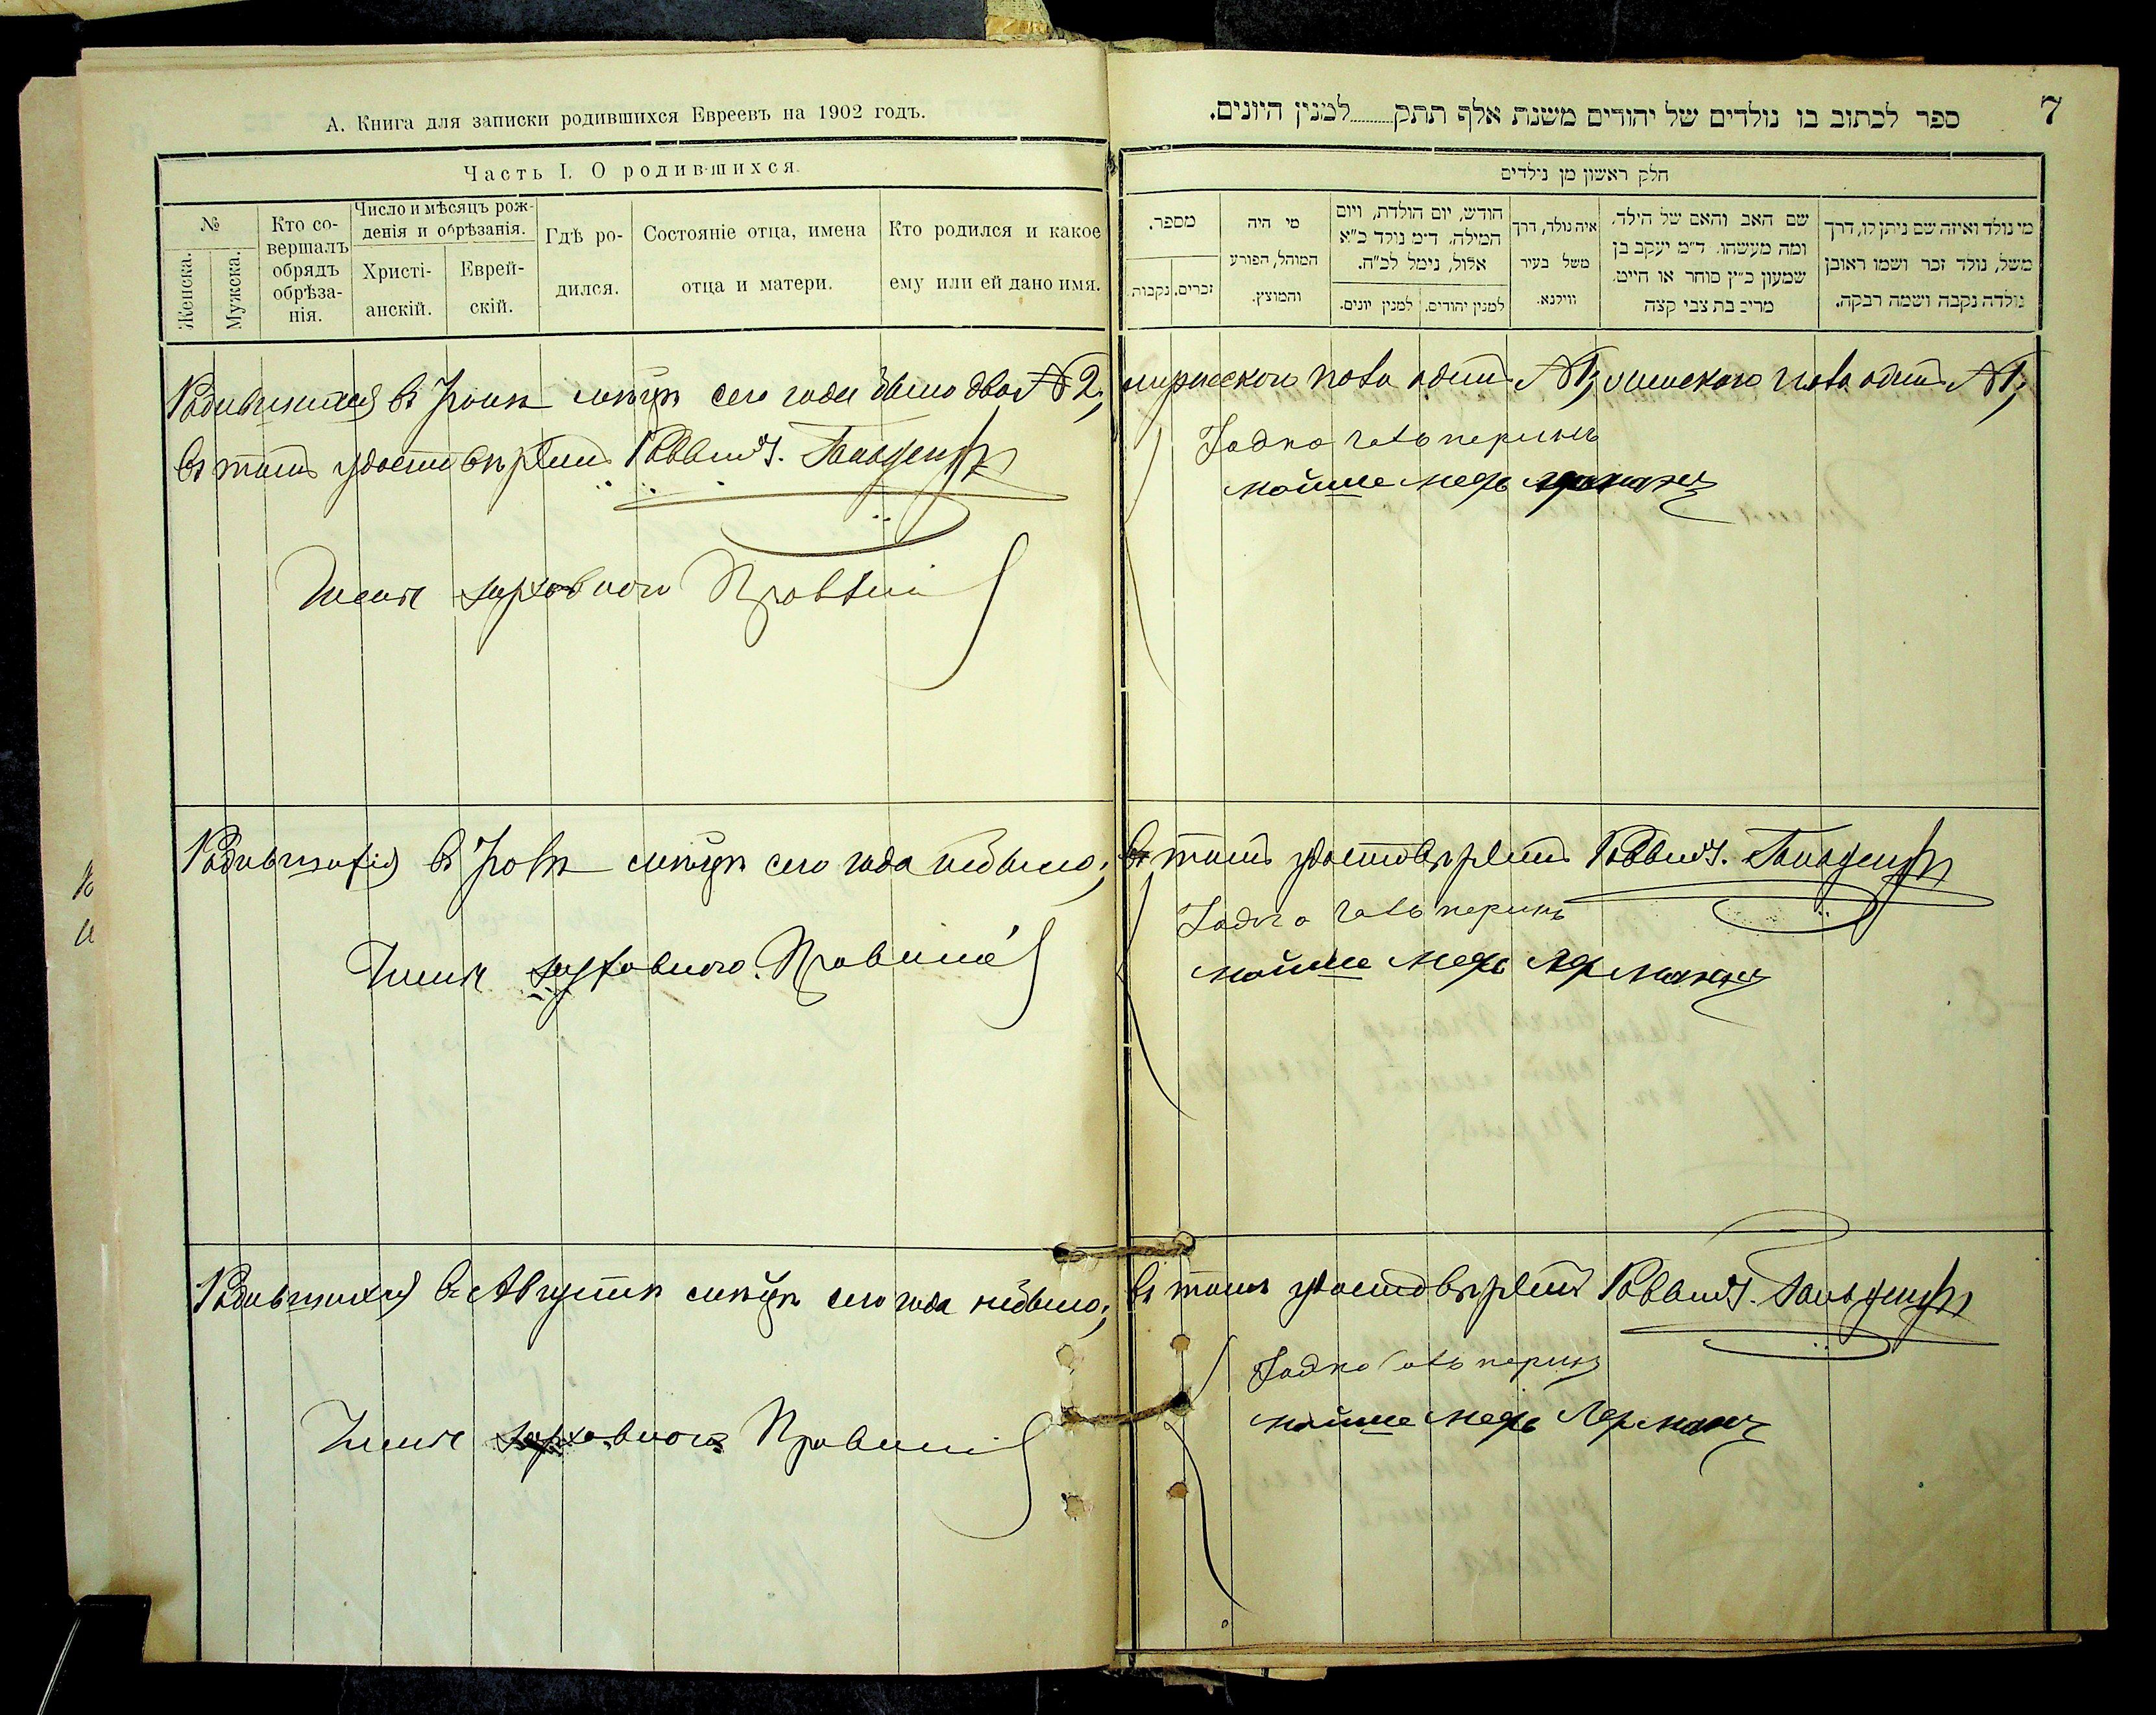 А. Книга для записки родившихся Евреевъ на 1902 годъ.
Часть I. О родившихся.
№
Женска.
Мужска.
Кто со-
вершалъ
обрядъ
обрѣза-
нія.
Число и мѣсяцъ рож-
денія и обрѣзанія.
Христі-
анскій.
Еврей-
скій.
Гдѣ ро-
дился.
Состояніе отца, имена
отца и матери.
Кто родился и какое
ему или ей дано имя.
7
ספר לכתוב בו נולדים של יהודים משנת אלף תתק........למנין היונים.
חלק ראשון מן נולדים
מספר.
זכרים.
נקבות.
מי היה
המוהל, הפורע
והמוצץ.
חודש, יום הולדת, ויום
המילה. ד״מ נולד כ״א
אלול, נימל לכ״ח.
למנין יהודים.
למנין יונים.
איה נולד, דרך
משל בעיר
ווילנא.
שם האב והאם של הילד.
ומה מעשהו. ד״מ יעקב בן
שמעון כ״ץ סוחר או חייט.
מרים בת צבי קצה
מי נולד ואיזה שם ניתן לו, דרך
משל, נולד זכר ושמו ראובן
נולדה נקבה ושמה רבקה.
Родившихся въ Іюнѣ мѣсяцѣ сего года было двое № 2,
мужескаго пола одинъ № 1, женскаго пола одинъ № 1,
въ томъ удостовѣряетъ Раввинъ
Члены духовнаго Правленія
мойше меръ Лерманъ
Родившихся въ Іюлѣ мѣсяцѣ сего года небыло,
въ томъ удостовѣряетъ Раввинъ
Члены духовнаго Правленія
мойше меръ Лерманъ
Родившихся въ Августѣ мѣсяцѣ сего года небыло,
въ томъ удостовѣряетъ Раввинъ
Члены духовнаго Правленія
мойше меръ Лерманъ